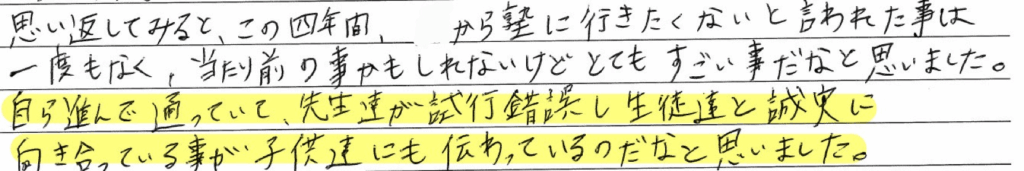 思い返してみると、この四年間、 から塾に行きたくないと言われた事は
一度もなく、当たり前の事かもしれないけどとてもすごい事だなと思いました。
自ら進んで通っていて、先生達が試行錯誤し生徒達と誠実に
向き合っている事が子供達にも伝わっているのだなと思いました。